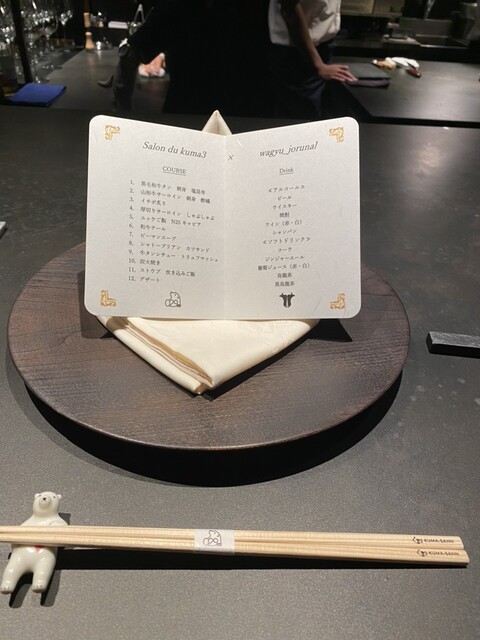 Salon du kuma3
×
wagyu_jorunal
COURSE
1. 黒毛和牛タン 刺身 塩昆布
2. 山形牛サーロイン 刺身
3. イチボ炙り
4. 厚切りサーロイン しゃぶしゃぶ
5. ユッケご飯 N25キャビア
6. 和牛ケール
7. ピーマンスープ
8. シャトーブリアン カツサンド
9. 牛タンシチュー トリュフマッシュ
10. 炭火焼き
11. ストウブ 炊き込みご飯
12. デザート
Drink
≪アルコール≫
ビール
ウイスキー
焼酎
ワイン（赤・白）
シャンパン
≪ソフトドリンク≫
コーラ
ジンジャーエール
葡萄ジュース（赤・白）
烏龍茶
黒烏龍茶
KUMA-SANN
KUMA-SANN